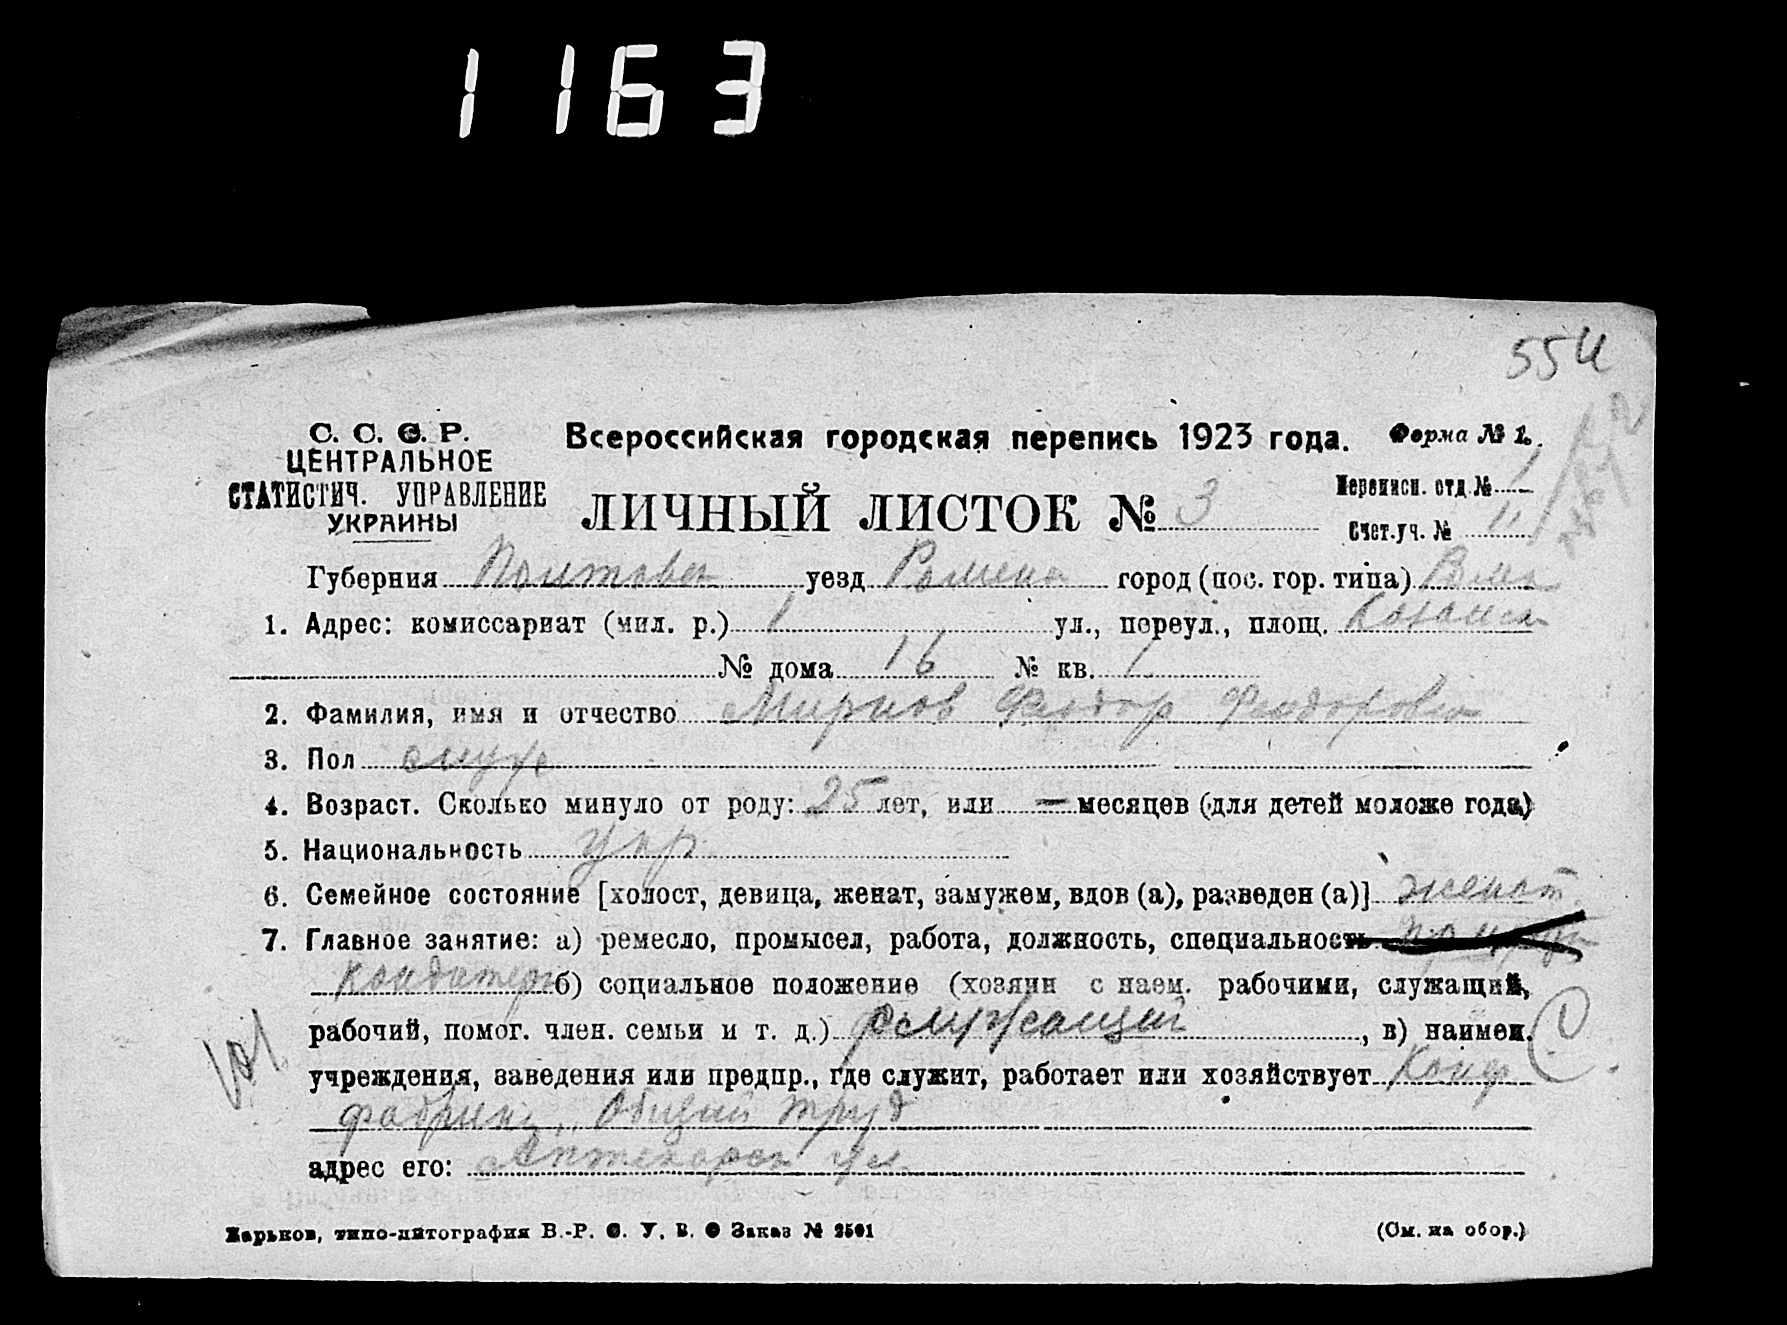 1163
554
С. С. Ф. Р.
ЦЕНТРАЛЬНОЕ
СТАТИСТИЧ. УПРАВЛЕНИЕ
УКРАИНЫ
Всероссийская городская перепись 1923 года. Форма № 1.
ЛИЧНЫЙ ЛИСТОК № 3
Переписн. отд. № 1
Счет. уч. № 11
Губерния Полтавск уезд Роменс город (пос. гор. типа)
1. Адрес: комиссариат (мил. р.) 1 ул., переул., площ.
№ дома 16 № кв. 1
2. Фамилия, имя и отчество Мирнов Феодор Феодорович
3. Пол муж
4. Возраст. Сколько минуло от роду: 25 лет, или — месяцев (для детей моложе года)
5. Национальность укр
6. Семейное состояние [холост, девица, женат, замужем, вдов (а), разведен (а)] женат
7. Главное занятие: а) ремесло, промысел, работа, должность, специальность
кондитер б) социальное положение (хозяин с наем. рабочими, служащий,
рабочий, помог. член. семьи и т. д.) служащий, в) наимен.
учреждения, заведения или предпр., где служит, работает или хозяйствует Конф
фабрик „Общий труд
адрес его: Аптекарск ул.
Харьков, типо-литография В.-Р. С. У. В. О Заказ № 2501
(См. на обор.)